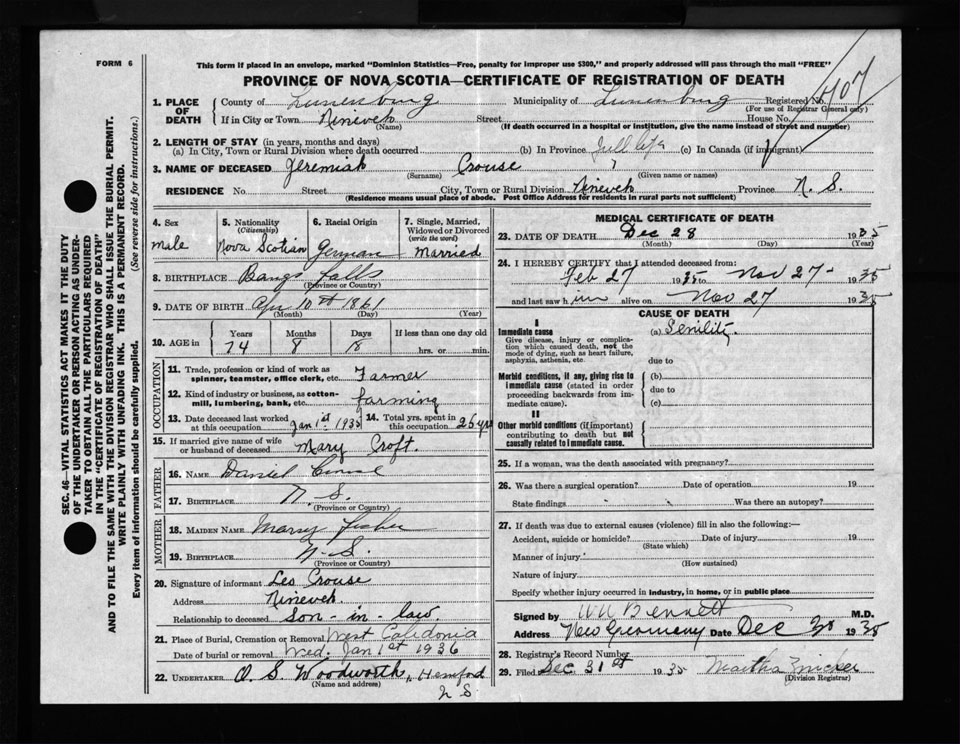 FORM 6
This form if placed in an envelope, marked "Dominion Statistics—Free, penalty for improper use $300," and properly addressed will pass through the mail "FREE"
PROVINCE OF NOVA SCOTIA—CERTIFICATE OF REGISTRATION OF DEATH
1. PLACE OF DEATH
County of Lunenburg Municipality of Lunenburg Registered No. 407
(For use of Registrar General only)
If in City or Town Ninevek Street House No.
(Name) (If death occurred in a hospital or institution, give the name instead of street and number)
2. LENGTH OF STAY (in years, months and days)
(a) In City, Town or Rural Division where death occurred (b) In Province full life (c) In Canada (if immigrant)
3. NAME OF DECEASED Jeremiah Crouse
(Surname) (Given name or names)
RESIDENCE No. Street City, Town or Rural Division Ninevek Province N. S.
(Residence means usual place of abode. Post Office Address for residents in rural parts not sufficient)
4. Sex
male
5. Nationality
(Citizenship)
Nova Scotian
6. Racial Origin
German
7. Single, Married, Widowed or Divorced
(write the word)
Married
8. BIRTHPLACE Bangs Falls
(Province or Country)
9. DATE OF BIRTH Apr 10th 1861
(Month) (Day) (Year)
10. AGE in
Years Months Days If less than one day old
74 8 18 hrs. or min.
OCCUPATION
11. Trade, profession or kind of work as
spinner, teamster, office clerk, etc. Farmer
12. Kind of industry or business, as cotton-
mill, lumbering, bank, etc. farming
13. Date deceased last worked at this occupation Jan 1st 1935
14. Total yrs. spent in this occupation 25 yrs
15. If married give name of wife
or husband of deceased Mary Croft.
FATHER
16. NAME Daniel Crouse
17. BIRTHPLACE N S.
(Province or Country)
MOTHER
18. MAIDEN NAME Mary
19. BIRTHPLACE N. S.
(Province or Country)
20. Signature of informant Les Crouse
Address Ninevek.
Relationship to deceased son-in-law.
21. Place of Burial, Cremation or Removal West Caledonia
Date of burial or removal Wed. Jan 1st 1936
22. UNDERTAKER O. S. Woodworth, Hemford
(Name and address) N S
MEDICAL CERTIFICATE OF DEATH
23. DATE OF DEATH Dec 28 1935
(Month) (Day) (Year)
24. I HEREBY CERTIFY that I attended deceased from:
Feb 27 1935 to Nov 27- 1935
and last saw him alive on Nov 27 1935
CAUSE OF DEATH
I
Immediate cause (a) Senility.
Give disease, injury or complica-
tion which caused death, not the
mode of dying, such as heart failure,
asphyxia, asthenia, etc. due to
Morbid conditions, if any, giving rise to (b)
immediate cause (stated in order due to
proceeding backwards from im-
mediate cause). (c)
II
Other morbid conditions (if important)
contributing to death but not
causally related to immediate cause.
25. If a woman, was the death associated with pregnancy?
26. Was there a surgical operation? Date of operation 19
State findings Was there an autopsy?
27. If death was due to external causes (violence) fill in also the following:—
Accident, suicide or homicide? Date of injury 19
(State which)
Manner of injury
(How sustained)
Nature of injury
Specify whether injury occurred in industry, in home, or in public place
Signed by Bennett M.D.
Address New Germany Date Dec 30 1935
28. Registrar's Record Number
29. Filed Dec 31st 1935 Martha Zwicker
(Division Registrar)
SEC. 46—VITAL STATISTICS ACT MAKES IT THE DUTY
OF THE UNDERTAKER OR PERSON ACTING AS UNDER-
TAKER TO OBTAIN ALL THE PARTICULARS REQUIRED
IN THE "CERTIFICATE OF REGISTRATION OF DEATH"
AND TO FILE THE SAME WITH THE DIVISION REGISTRAR WHO SHALL ISSUE THE BURIAL PERMIT.
WRITE PLAINLY WITH UNFADING INK. THIS IS A PERMANENT RECORD.
Every item of information should be carefully supplied. (See reverse side for instructions.)